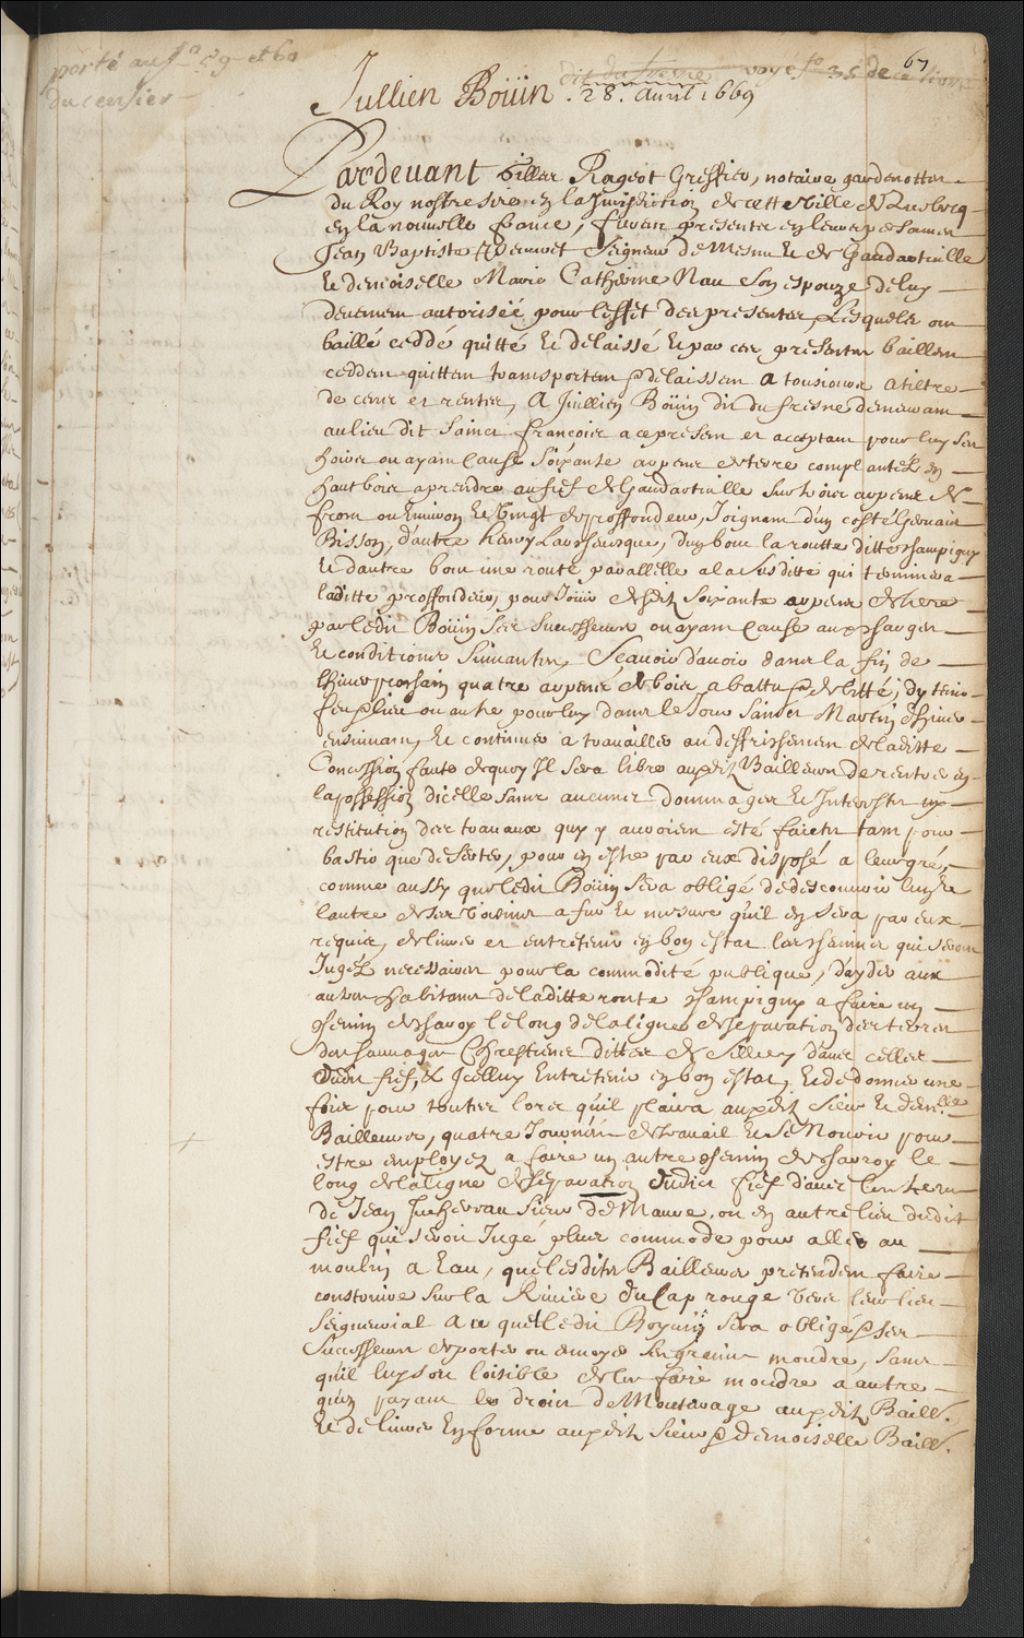 67
porté au f.o 59 et 60
du censier
dit du fresne voyé f.o 35 de ce livre
Jullien Boüin . 28. auril 1669
Pardeuant Gilles Rageot Greffier, notaire gardenottes
du Roy nostre sire en la Jurisdiction de cette ville de Quebecq
en la nouuelle france, furent presents en leurs personnes
Jean Baptiste Peuuret Seigneur de Mesnu et de Gaudaruille
et demoiselle Marie Catherine Nau son espouze de luy
deuement autorisée pour l'effet des presentes, Lesquels ont
baillé ceddé quitté et delaissé et par ces presentes baillent
ceddent quittent transportent & delaissent a tousiours a tiltre
de cens et rentes, A Jullien Boüin dit du fresne demeurant
au lieu dit Sainct françois a ce present et acceptant pour luy ses
hoirs ou ayant cause Soixante arpens de terre complantéz en
haut bois a prendre au fief de Gaudaruille sur trois arpens de
front ou enuiron et vingt de proffondeur, Joignant d'un costé Geruais
Bisson, d'autre henry Larcheuesque, d'un bout la routte ditte champigny
et dautre bout une route paralelle a la susditte qui terminera
laditte proffondeur, pour Jouir desdits Soixante arpens de terre
par ledit Boüin ses successeurs ou ayant cause aux charges
et conditions suiuantes, Scauoir d'auoir dans la fin de
lhiuer prochain quatre arpens de bois abattu & debitté, dy tenir
feu & lieu ou autre pour luy dans le jour Sainct Martin d'hiuer
ensuiuant, et continuer a trauailler au deffrichement de laditte
Concession faute de quoy Il sera libre auxdits Bailleurs de rentrer en
la possession dicelle sans aucuns dommages et Interests ny
restitution des trauaux quy y auroient esté faicts tant pour
bastir que deserter, pour en estre par eux disposé a leur gré,
comme aussy que ledit Boüin sera obligé de descouurir l'un et
lautre de ses voisins a fur et mesure qu'il en sera par eux
requis, de liurer et entretenir en bon estat les chemins qui seront
Jugéz necessaires pour la commodité publique, d'ayder aux
autres habitans de laditte route champigny a faire un
chemin de charoy le long de la ligne de separation des terres
des sauuages Chrestiens dittes de Sillery d'auec celles
dudit fief, & Jcelluy Entretenir en bon estat, et de donner une
fois pour toutes lors qu'il plaira auxdits Sieur et dem.lle
Bailleurs, quatre Journées de trauail et se Nourir pour
estre employez a faire un autre chemin de charroy le
long de la ligne de separation dudict fief d'auec les terres
de Jean Juchereau Sieur de Maure, ou en autre lieu dudit
fief qui seroit Jugé plus commode pour aller au
moulin a Eau, que lesdits Bailleurs pretendent faire
construire sur la Riuiere du Cap rouge vers leur lieu
Seigneurial Au quel ledit Boyuin sera obligé & ses
Successeurs de porter ou enuoyer ses grains moudre, sans
qu'il luy soit loisible de les faire moudre a autre
qu'en payant le droict de Moulturage auxdits Baill.
et de liurer En forme auxdits Sieur & demoiselle Baill.